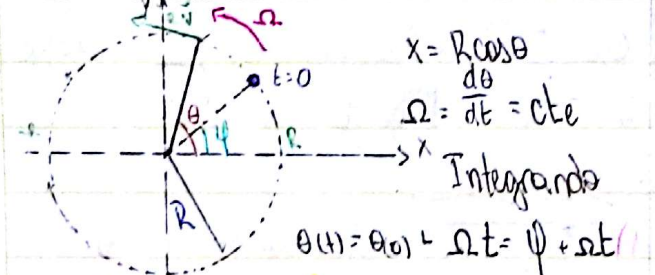 y
v
Ω
t=0
θ
φ
R
x
R
x = Rcosθ
Ω = dθ/dt = cte
Integrando
θ(t) = θ(0) + Ωt = φ + Ωt